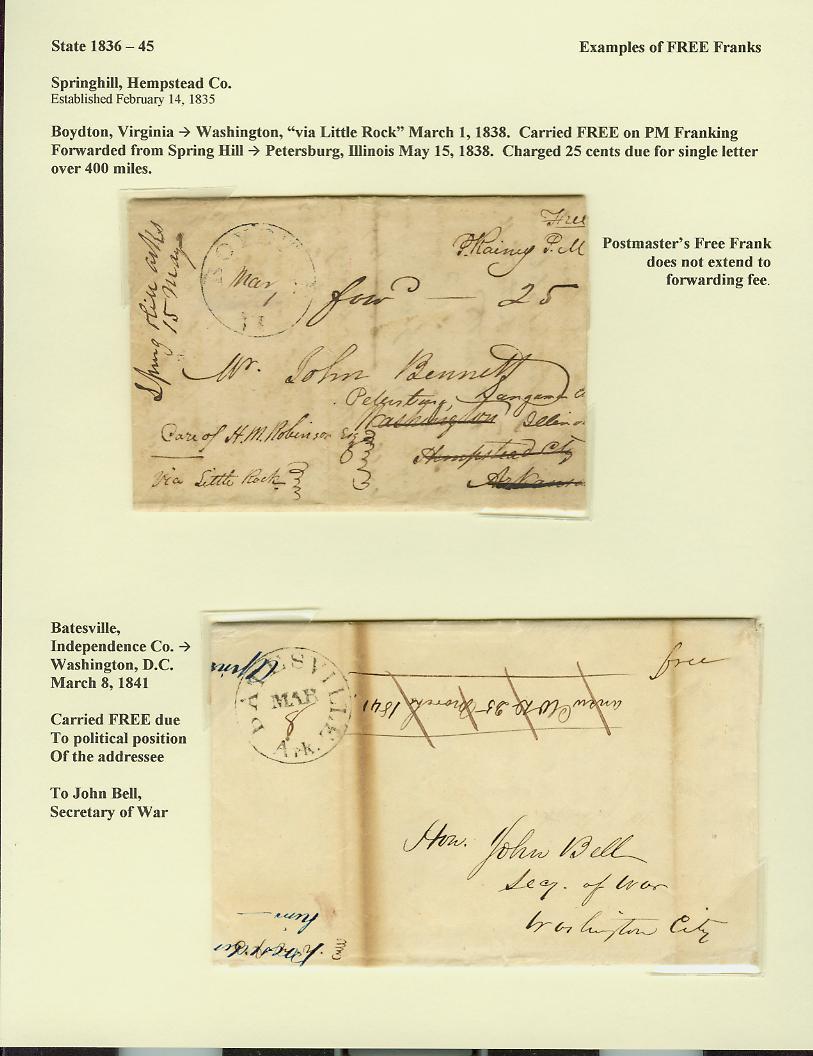 State 1836 – 45
Examples of FREE Franks
Springhill, Hempstead Co.
Established February 14, 1835
Boydton, Virginia → Washington, “via Little Rock” March 1, 1838. Carried FREE on PM Franking
Forwarded from Spring Hill → Petersburg, Illinois May 15, 1838. Charged 25 cents due for single letter
over 400 miles.
Postmaster's Free Frank
does not extend to
forwarding fee.
Free
Rainey P.M
Spring
15 May
BOYD
Mar
1
Forwd — 25
Mr. John Bennett
Petersburg, Sangamo
Washington Illino
Care of H.M. Robinson Esq
Hempstead Cty
Via Little Rock
Arkansa
Batesville,
Independence Co. →
Washington, D.C.
March 8, 1841
Carried FREE due
To political position
Of the addressee
To John Bell,
Secretary of War
free
BATESVILLE
MAR
8
Ark.
25 March 1841
Hon. John Bell
Secy. of War
Washington City
him